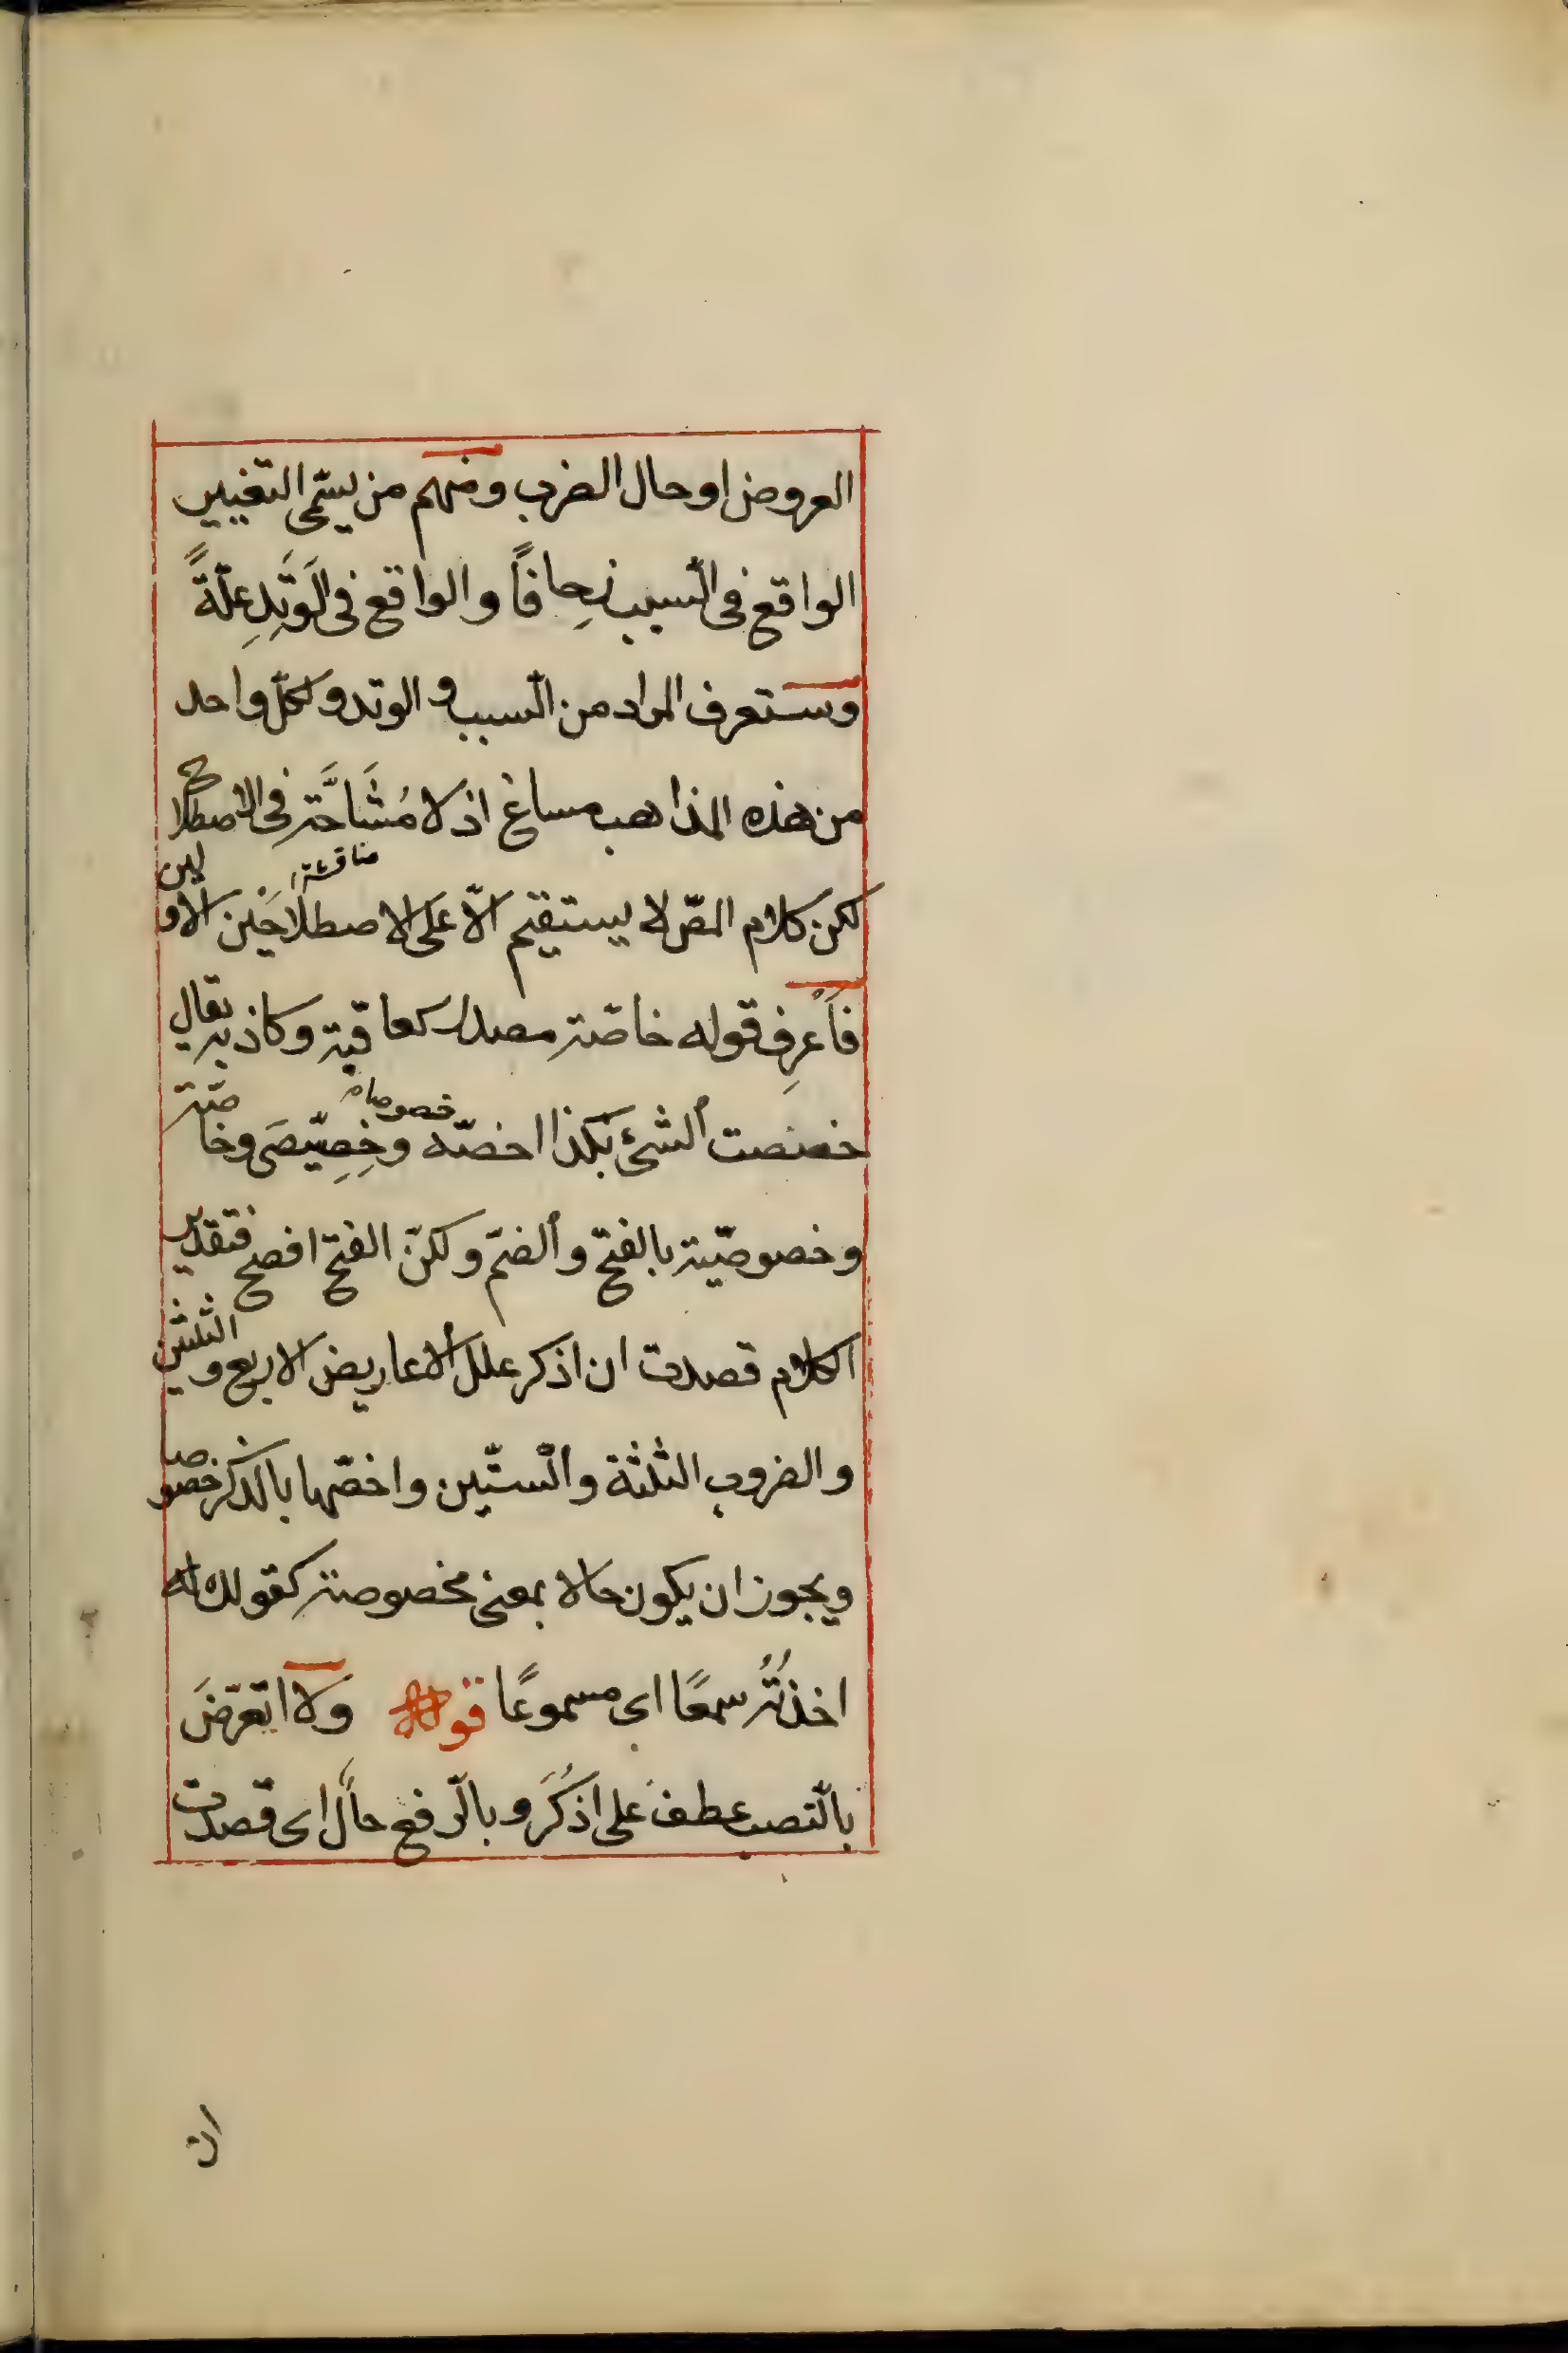 العروض او حال الضرب ومنهم من يسّمى التغيير
الواقع فى السّبب زِحافًا والواقع فى الَوَتِدِ علّةً
وستعرف المراد من السّبب و الوتد ولكلّ واحد
من هذه المذاهب مساغ اذ لا مُشَاحَّة فى الاصطلاح
مناقشة
لكن كلام المصّ لا يستقيم الّا على الاصطلاحَين الاولين
فَاعرِف قوله خاصّة مصدر كعاقبة وكاذبة يقال
خصصت الشئ بكذا اخصّه خصوصا وخِصِّيصَى وخاصّة
وخصوصيّة بالفتح والضّم ولكنّ الفتح افصح فتقدير
الكلام قصدت ان اذكر علل الاعاريض الاربع والثلثين
والضروب الثلثة والسّتّين واخصّها بالذكر خصوصا
ويجوز ان يكون حالا بمعنى مخصوصة كقولك له
اخذتُهُ سمعًا اى مسموعًا قوله ولا اتعرّضَ
بالنّصب عطف على اذكُرَ و بالرّفع حال اى قصدت
ان